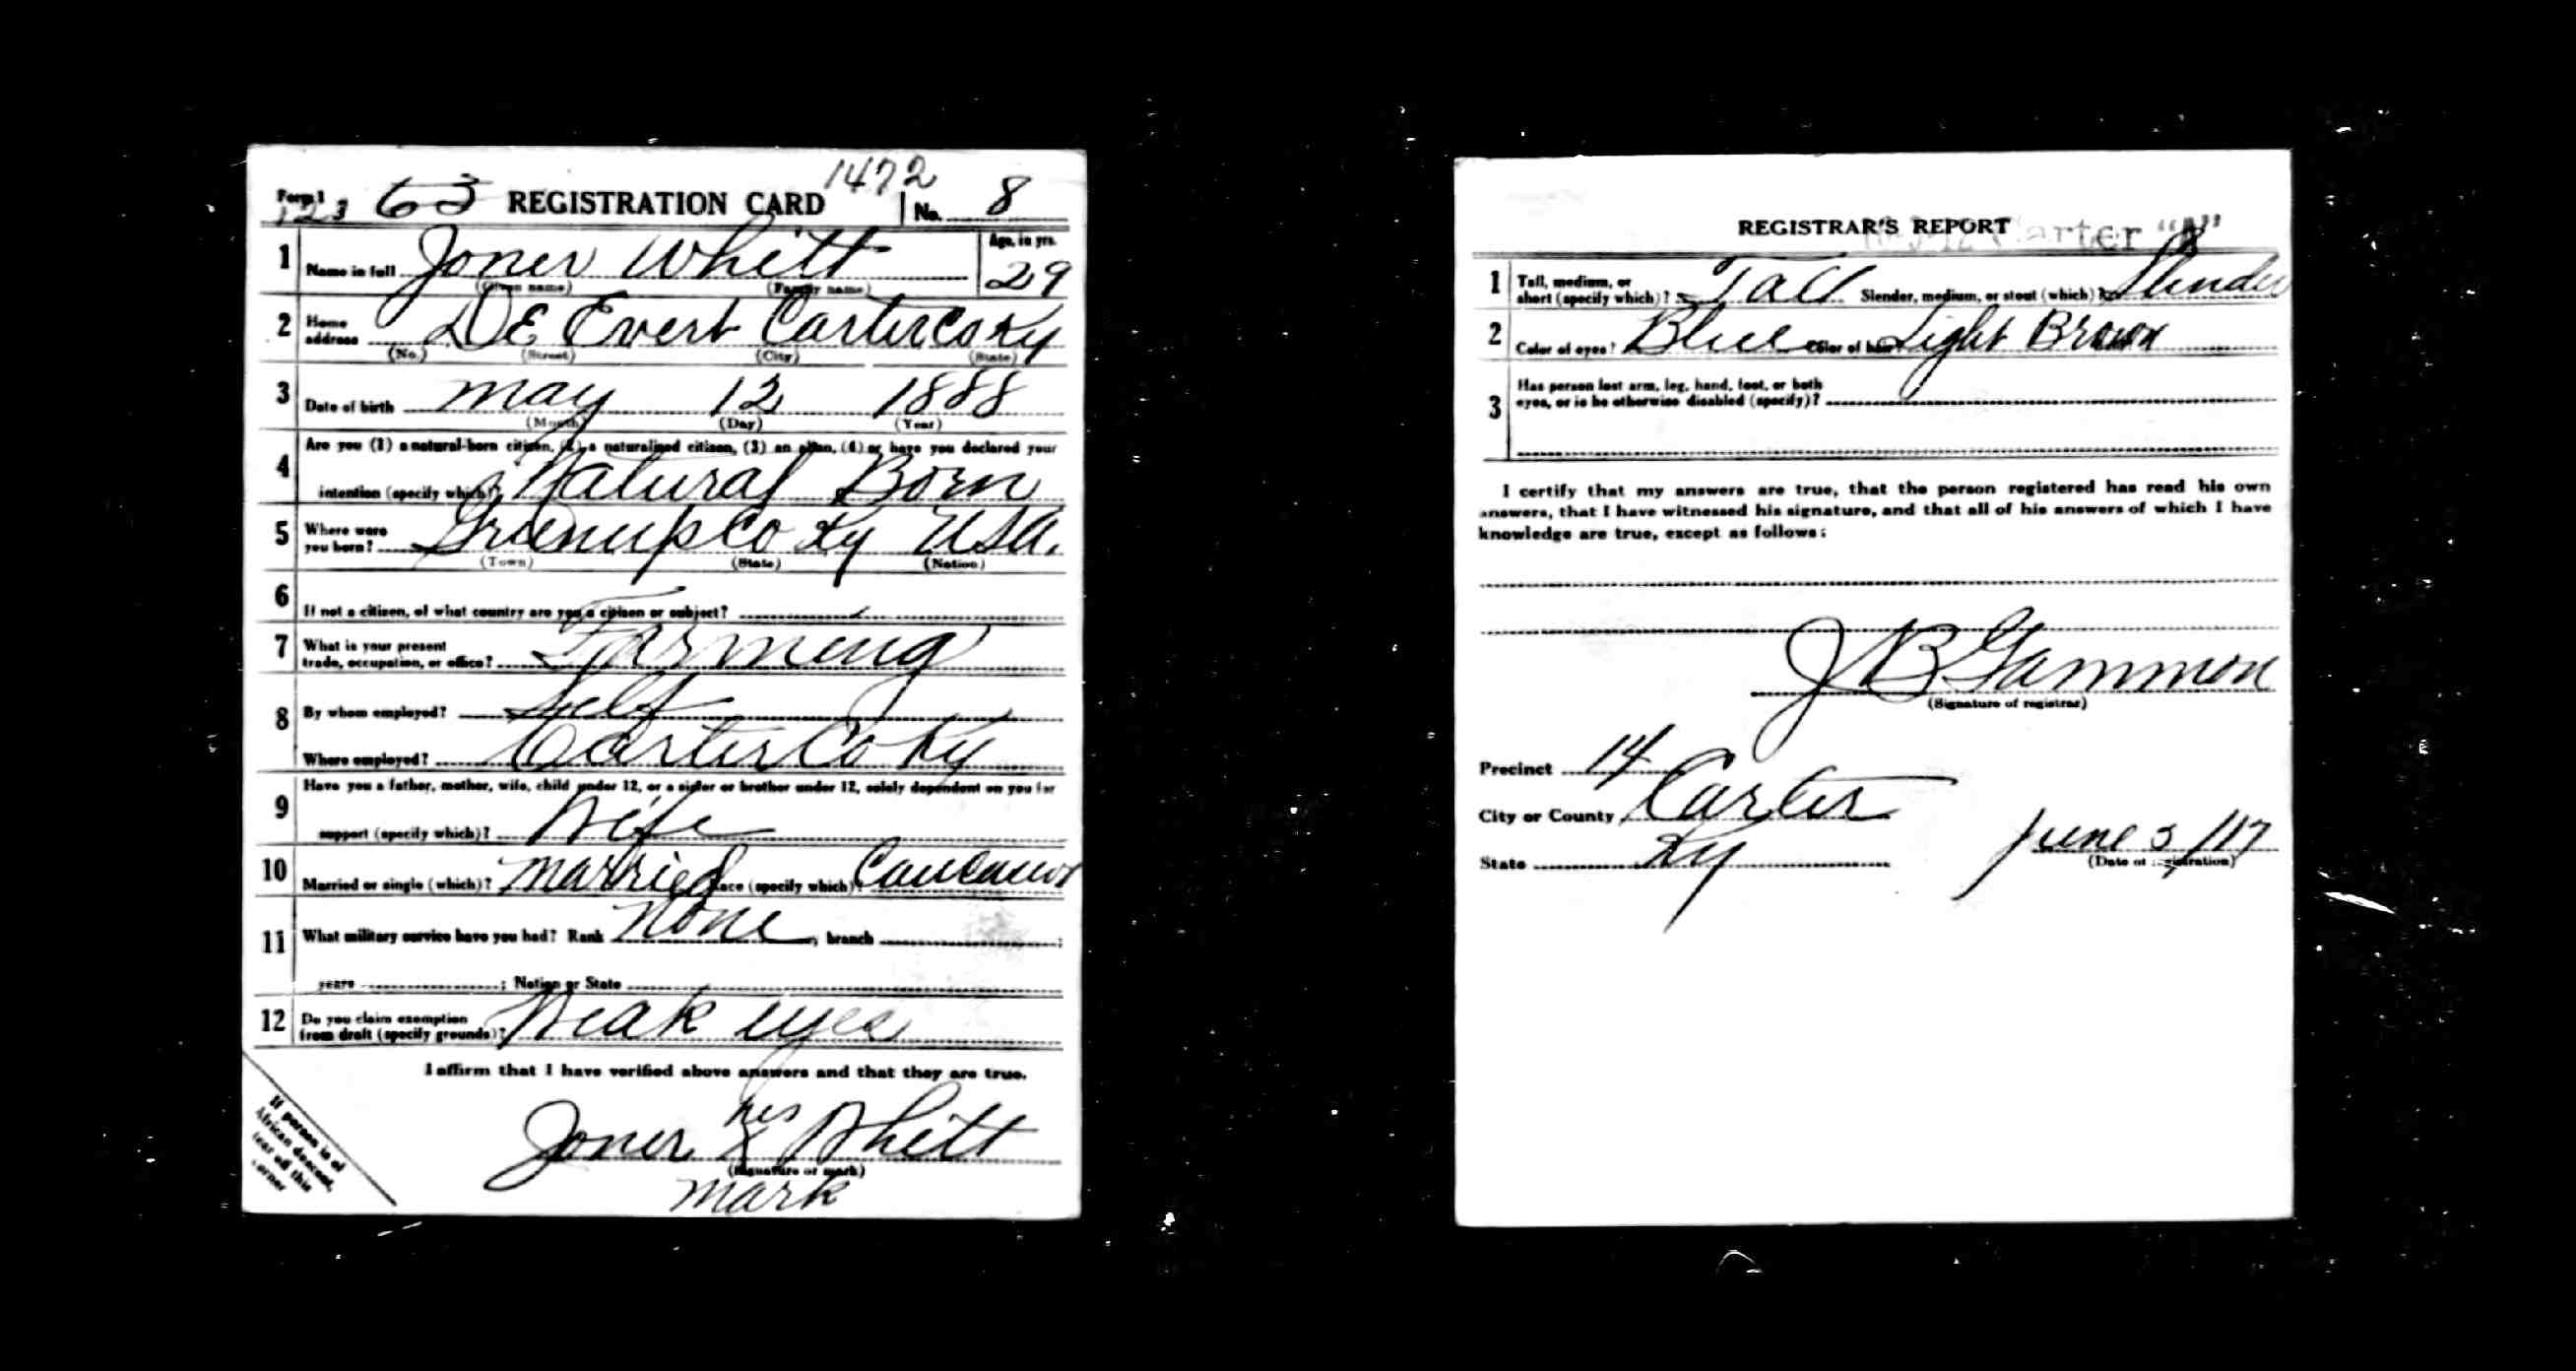 1472
Form 1 63 REGISTRATION CARD No. 8
123
1 Name in full Joner Whitt Age, in yrs. 29
(Given name) (Family name)
2 Home address DE Evert Carter Co Ky
(No.) (Street) (City) (State)
3 Date of birth May 12 1888
(Month) (Day) (Year)
4 Are you (1) a natural-born citizen, (2) a naturalized citizen, (3) an alien, (4) or have you declared your
intention (specify which)? Natural Born
5 Where were you born? Greenup Co Ky USA.
(Town) (State) (Nation)
6 If not a citizen, of what country are you a citizen or subject?
7 What is your present trade, occupation, or office? Farming
8 By whom employed? Self
Where employed? Carter Co Ky
9 Have you a father, mother, wife, child under 12, or a sister or brother under 12, solely dependent on you for
support (specify which)? Wife
10 Married or single (which)? Married Race (specify which)?
11 What military service have you had? Rank None, branch ;
years ; Nation or State
12 Do you claim exemption from draft (specify grounds)? Weak eyes
I affirm that I have verified above answers and that they are true.
his
Joner X Whitt
(Signature or mark)
mark
If person is of
African descent,
tear off this
corner
REGISTRAR'S REPORT
Carter "A"
1 Tall, medium, or short (specify which)? Tall Slender, medium, or stout (which)? Slender
2 Color of eyes? Blue Color of hair? Light Brown
3 Has person lost arm, leg, hand, foot, or both
eyes, or is he otherwise disabled (specify)?
I certify that my answers are true, that the person registered has read his own
answers, that I have witnessed his signature, and that all of his answers of which I have
knowledge are true, except as follows:
J B Gammon
(Signature of registrar)
Precinct 14
City or County Carter
State Ky June 5/17
(Date of registration)